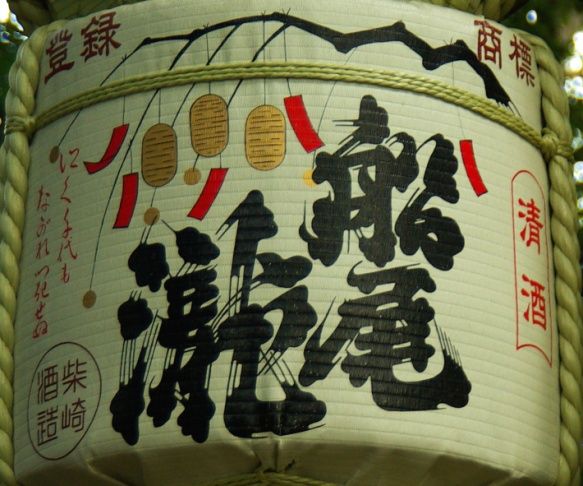 登録
商標
清酒
船尾
瀧
いく千代も
ながれつきせぬ
柴崎
酒造